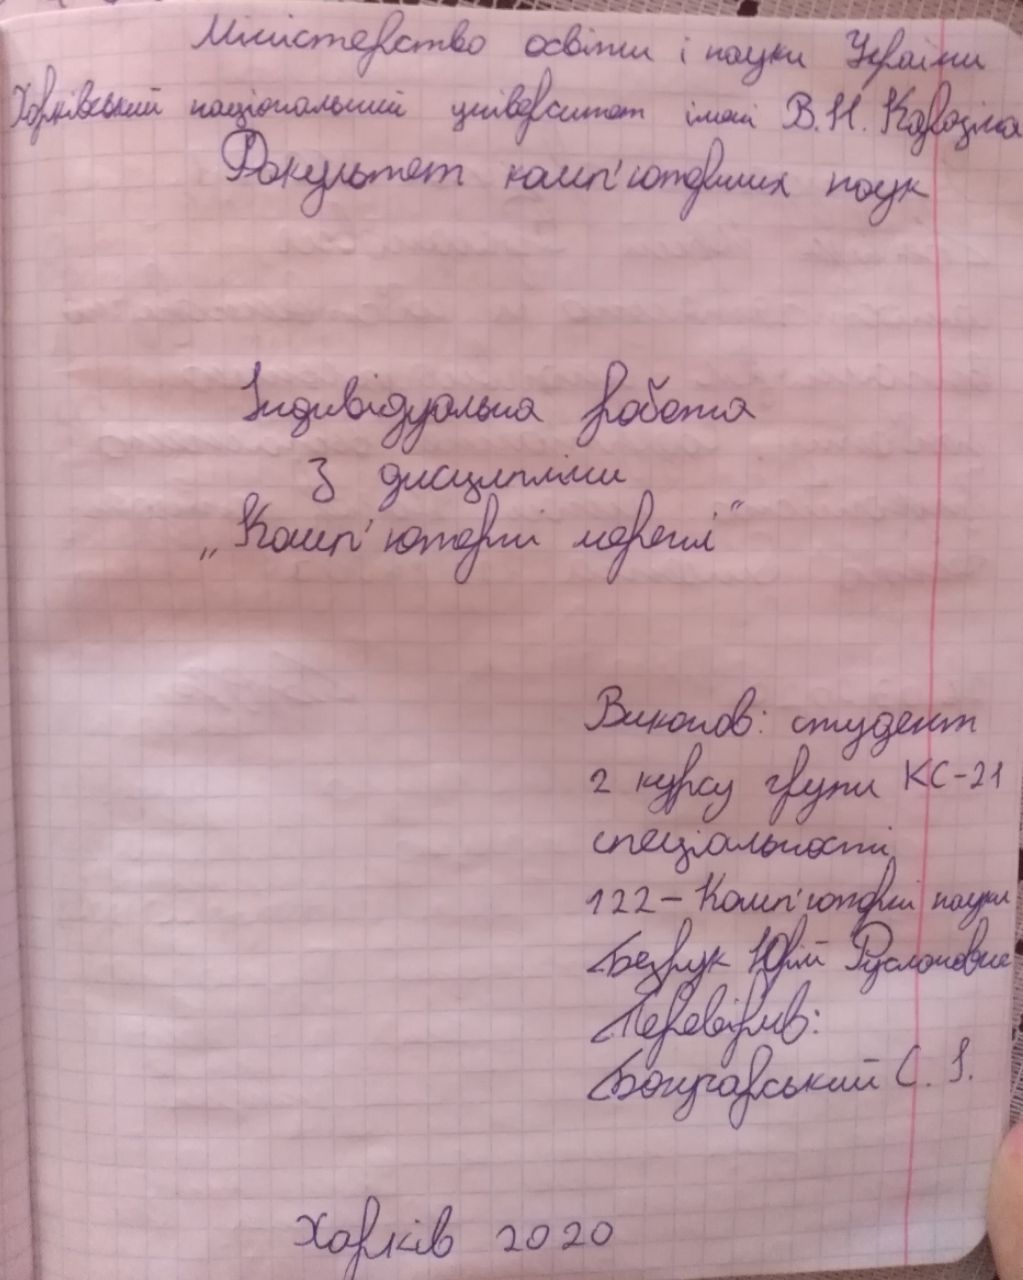 Міністерство освіти і науки України
Харківський національний університет імені В.Н. Каразіна
Факультет комп'ютерних наук
Індивідуальна робота
З дисципліни
„Комп'ютерні мережі"
Виконав: студент
2 курсу групи КС-21
спеціальності
122- Комп'ютерні науки
Безрук Юрій Русланович
Перевірив:
Богучарський С. І.
Харків 2020